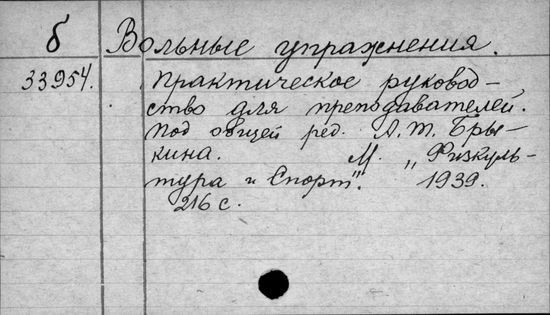 б Вольные упражнения.
33954. Практическое руковод-
ство для преподавателей.
Под общей ред. А.Т. Бры-
кина. М. „Физкуль-
тура и Спорт". 1939.
216 с.